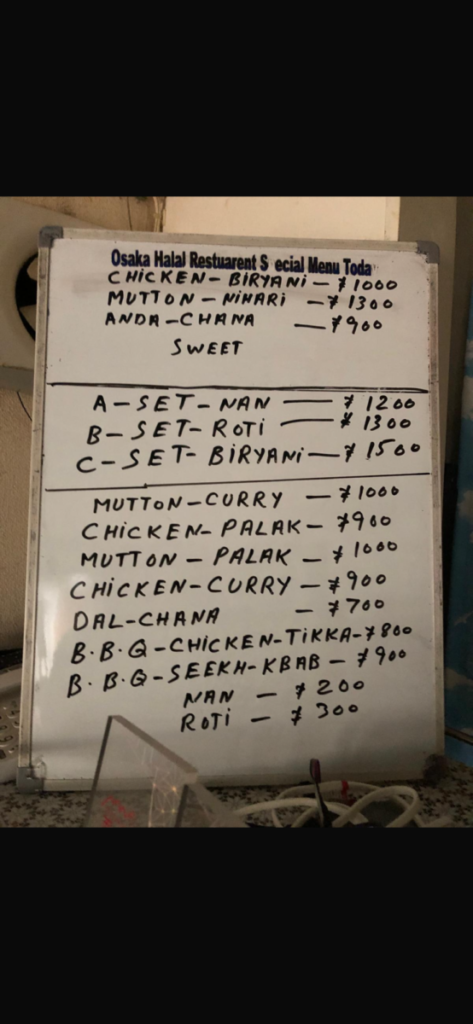 Osaka Halal Restuarent S ecial Menu Toda
CHiCKEN-BiRYANi-¥1000
MUTTON-NiHARi -¥1300
ANDA-CHANA -¥900
SWEET
A-SET-NAN - ¥1200
B-SET-ROTi - ¥1300
C-SET-BiRYANi-¥1500
MUTTON-CURRY - ¥1000
CHiCKEN-PALAK- ¥900
MUTTON-PALAK - ¥1000
CHiCKEN-CURRY-¥900
DAL-CHANA - ¥700
B.B.Q-CHICKEN-TiKKA-¥800
B.B.Q-SEEKH-KBAB-¥900
NAN - ¥200
ROTi - ¥300